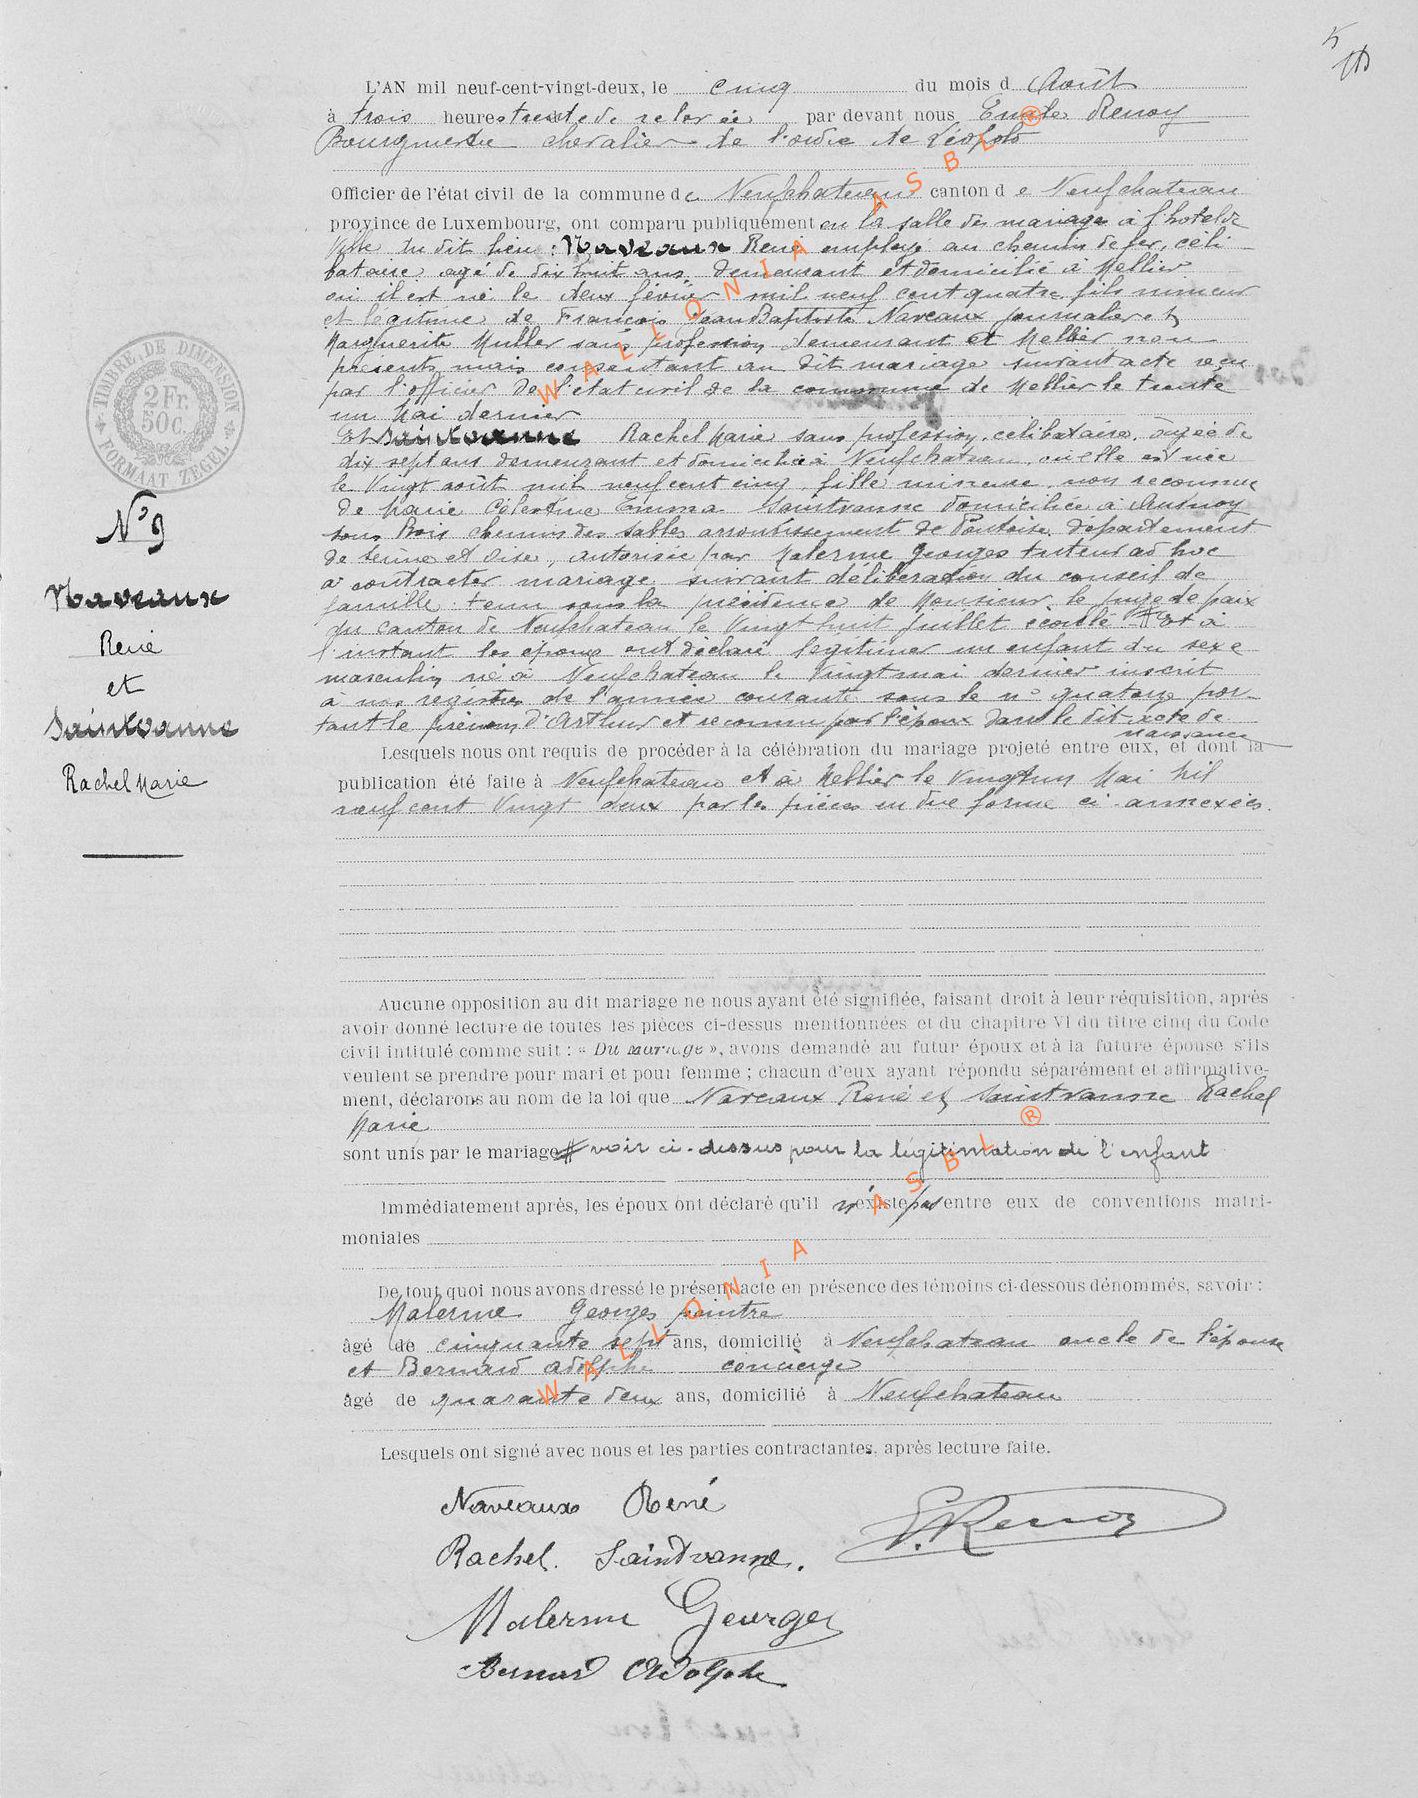 5
L'AN mil neuf-cent-vingt-deux, le cinq du mois d Août
à trois heures trente de relevée par devant nous Emile Renoy
Bourgmestre chevalier de l'ordre de Léopold
Officier de l'état civil de la commune de Neufchateau canton de Neufchateau
province de Luxembourg, ont comparu publiquement en la salle des mariages à l'hotel de
Ville du dit lieu : Naveaux René employé au chemin de fer, céli-
bataire, agé de dix huit ans, demeurant et domicilié à Mellier
où il est né le deux février mil neuf cent quatre fils mineur
et légitime de François Jean Baptiste Naveaux journalier et
Marguerite Muller sans profession demeurant et Mellier non
présents mais consentant au dit mariage suivant acte reçu
par l'officier de l'état civil de la commune de Mellier le trente
un Mai dernier
Et Saintvanne Rachel Marie sans profession, célibataire, âgée de
dix sept ans demeurant et domiciliée à Neufchateau, où elle est née
le Vingt août mil neuf cent cinq, fille mineure, non reconnue
de Marie Célestine Emma Saintvanne domiciliée à Aulnoy
sous Bois chemin des sables arrondissement de Pontoise, département
de Seine et Oise, autorisée par Malerme Georges tuteur ad hoc
à contracter mariage suivant délibération du conseil de
famille tenu sous la présidence de Monsieur le Juge de paix
du canton de Neufchateau le Vingt huit juillet écoulé # Et à
l'instant les époux ont déclaré légitimer un enfant du sexe
masculin né à Neufchateau le Vingt mai dernier inscrit
à nos registres de l'année courante sous le n° quatorze por-
tant le prénom d'Arthur et reconnu par l'époux dans le dit acte de
naissance
Lesquels nous ont requis de procéder à la célébration du mariage projeté entre eux, et dont la
publication été faite à Neufchateau et à Mellier le Vingt un Mai Mil
neuf cent Vingt deux par les pièces en due forme ci-annexées.
Aucune opposition au dit mariage ne nous ayant été signifiée, faisant droit à leur réquisition, après
avoir donné lecture de toutes les pièces ci-dessus mentionnées et du chapitre VI du titre cinq du Code
civil intitulé comme suit : « Du mariage », avons demandé au futur époux et à la future épouse s'ils
veulent se prendre pour mari et pour femme ; chacun d'eux ayant répondu séparément et affirmative-
ment, déclarons au nom de la loi que Naveaux René et Saintvanne Rachel
Marie
sont unis par le mariage # voir ci-dessus pour la légitimation de l'enfant
Immédiatement après, les époux ont déclaré qu'il n'existe pas entre eux de conventions matri-
moniales
De tout quoi nous avons dressé le présent acte en présence des témoins ci-dessous dénommés, savoir :
Malerme Georges peintre
âgé de cinquante sept ans, domicilié à Neufchateau oncle de l'épouse
et Bernard Adolphe concierge
âgé de quarante deux ans, domicilié à Neufchateau
Lesquels ont signé avec nous et les parties contractantes, après lecture faite.
Naveaux René
E. Renoy
Rachel Saintvanne.
Malerme Georges
Bernard Adolphe
TIMBRE DE DIMENSION
2 Fr.
50 C.
FORMAAT ZEGEL
N° 9
Naveaux
René
et
Saintvanne
Rachel Marie
WALLONIA ASBL ®
WALLONIA ASBL ®